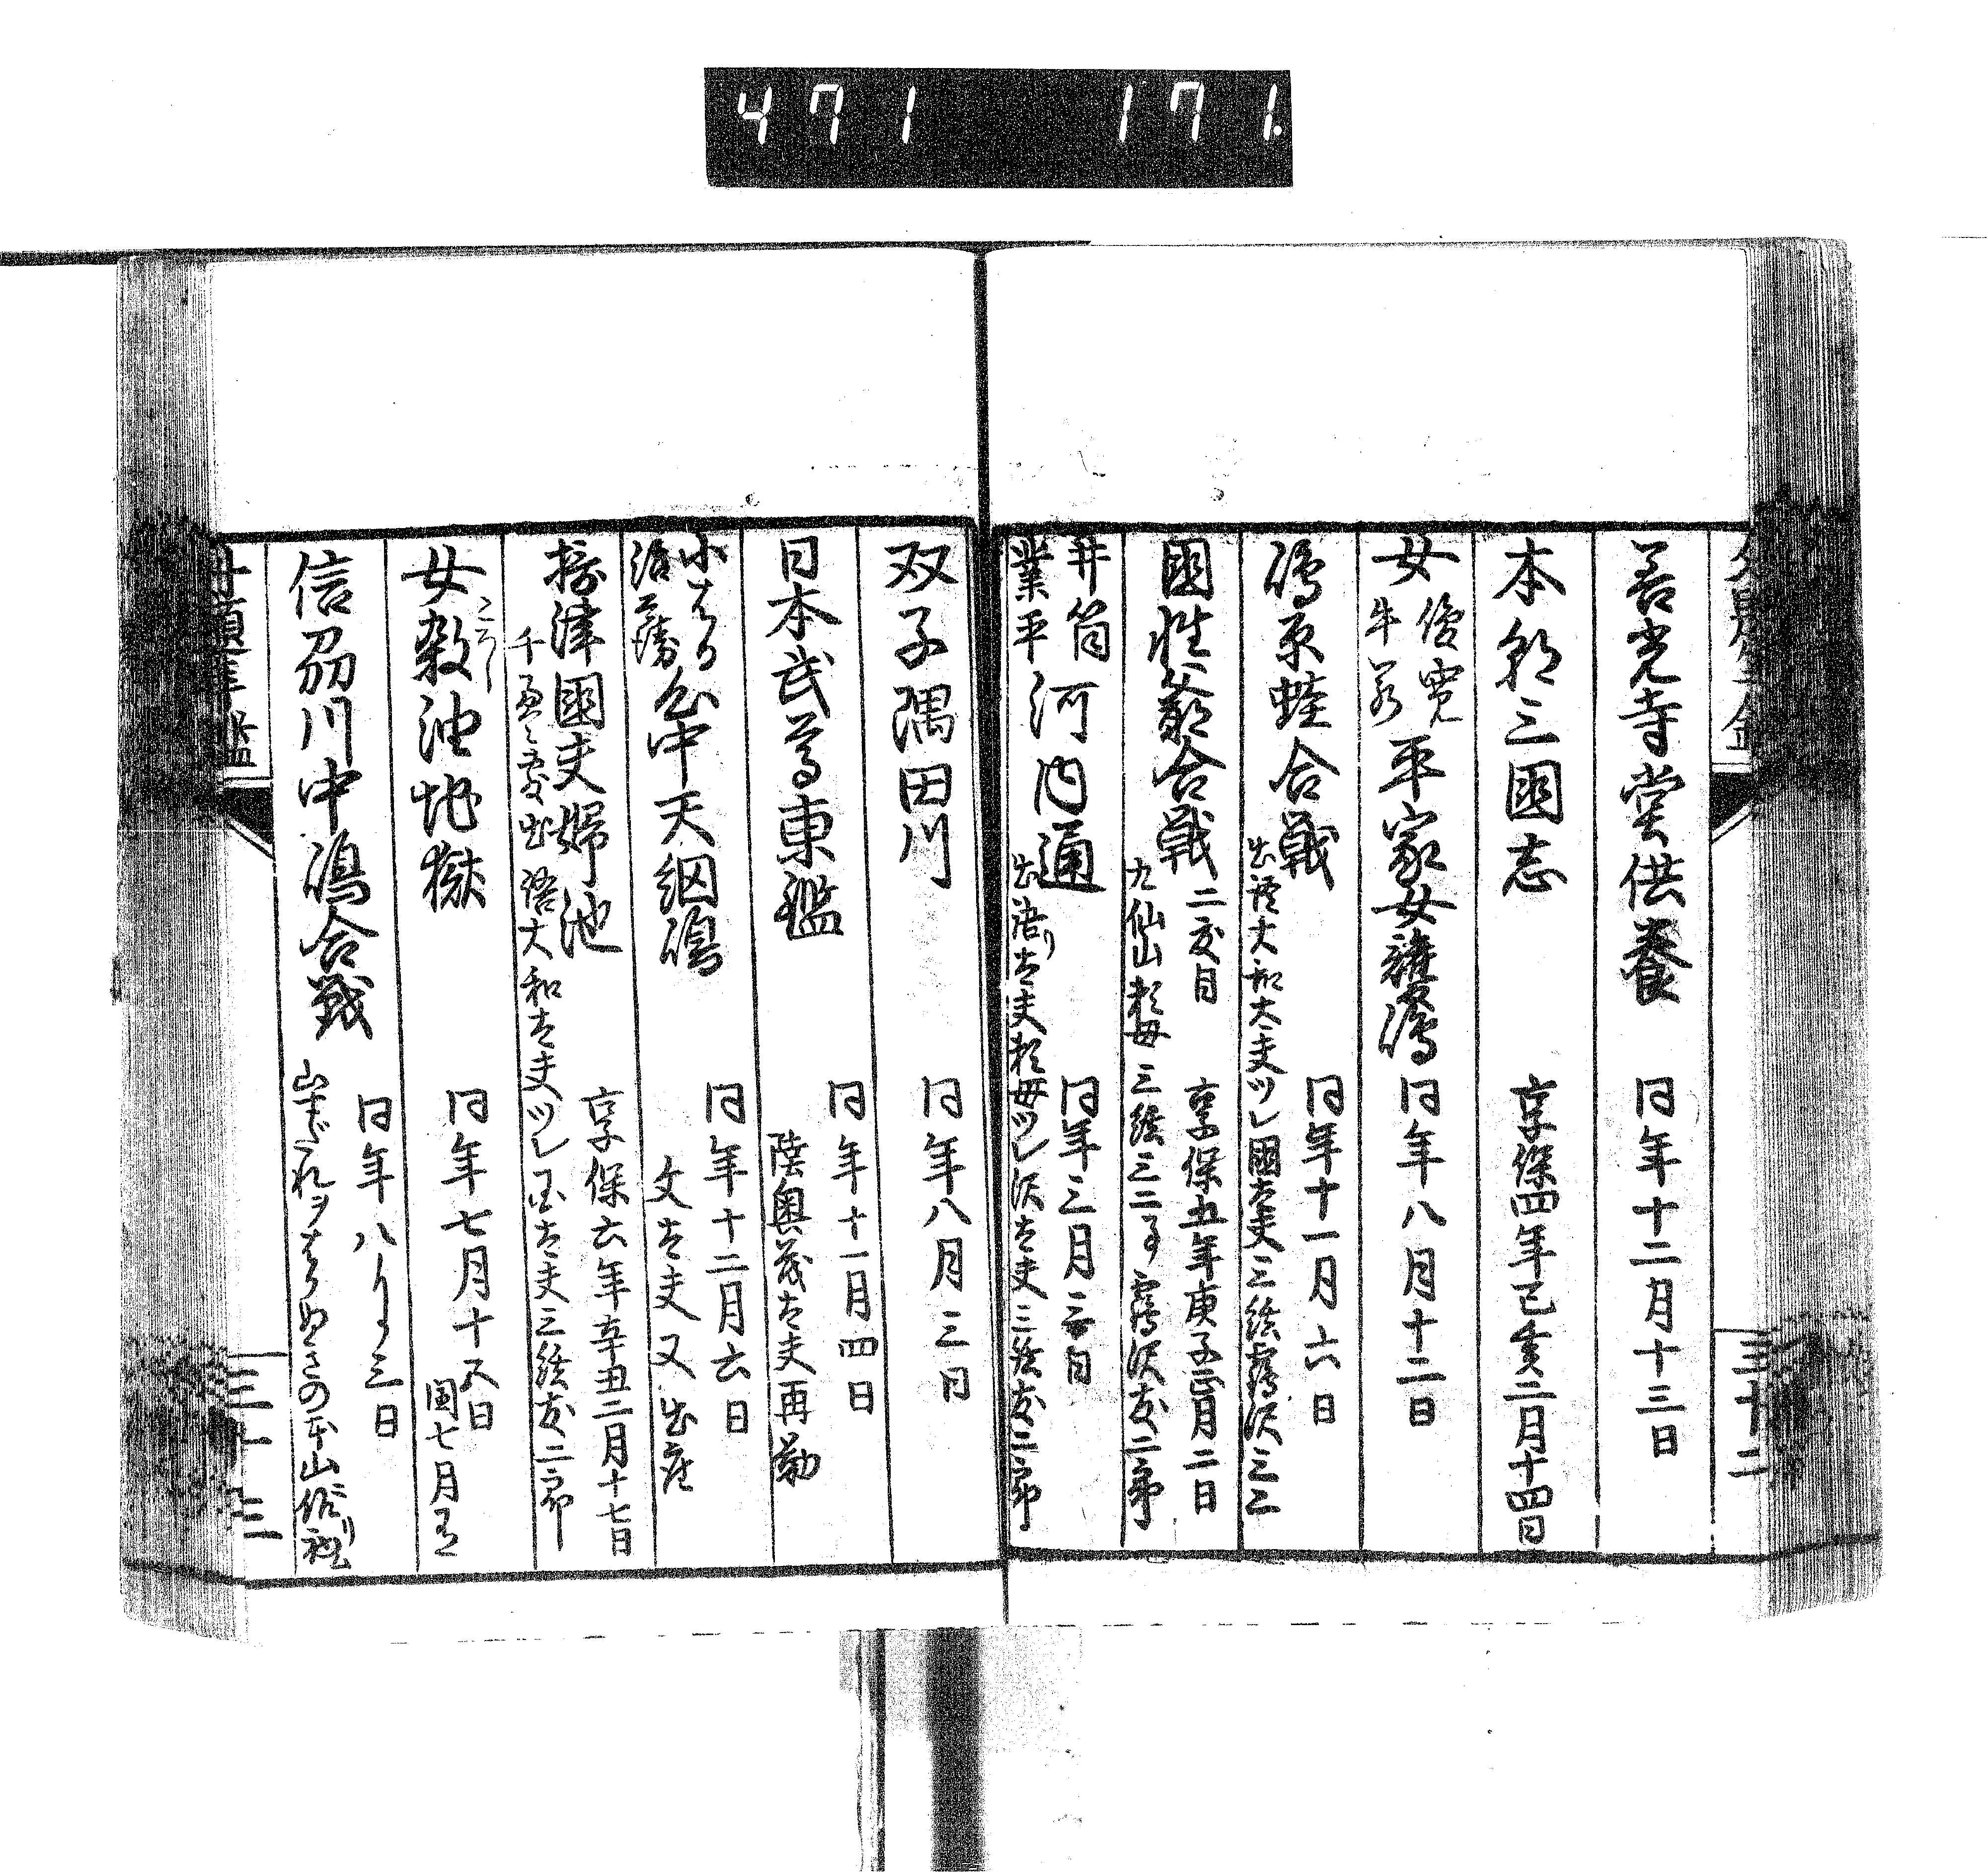 471 171.
三十二
善光寺堂供養 同年十二月十三日
本朝三國志 享保四年己亥二月十四日
俊寛
牛若
平家女護嶋 同年八月十二日
嶋原蛙合戦 同年十一月六日
出語大和太夫ツレ國太夫三絃鶴沢三二
國性爺合戦 二度目 享保五年庚子正月二日
九仙山 頼母 三絃三二 鶴沢友二郎
井筒
業平
河内通 同年三月三日
出語り太夫頼母ツレ沢太夫三絃友二郎
双子隅田川 同年八月三日
日本武尊東鑑 同年十一月四日
陸奥茂太夫再勤
小はる
治兵衛
心中天網嶋 同年十二月六日
文太夫又出座
攝津國夫婦池 享保六年辛丑二月十七日
出語大和太夫ツレ 太夫三絃友二郎
女殺油地獄 同年七月十五日
ころし
閏七月有
信州川中嶋合戦 同年八月三日
三十三